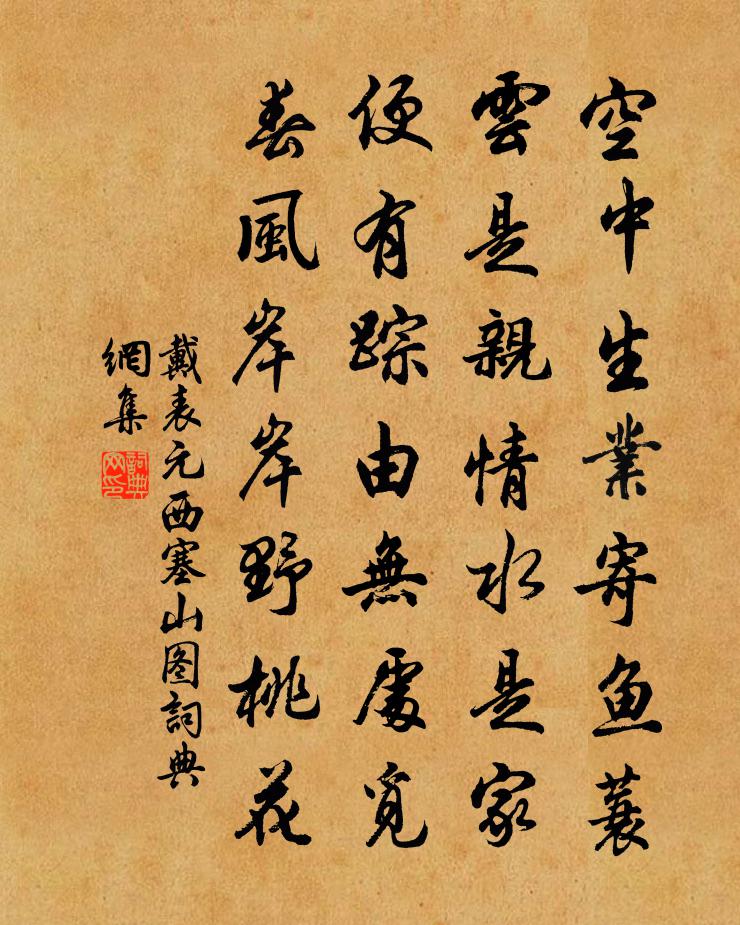 空中生業寄鱼蓑
雲是親情水是家
便有踪由無處覓
春風岸岸野桃花
戴表元西塞山图詞典
網集
詞典網印